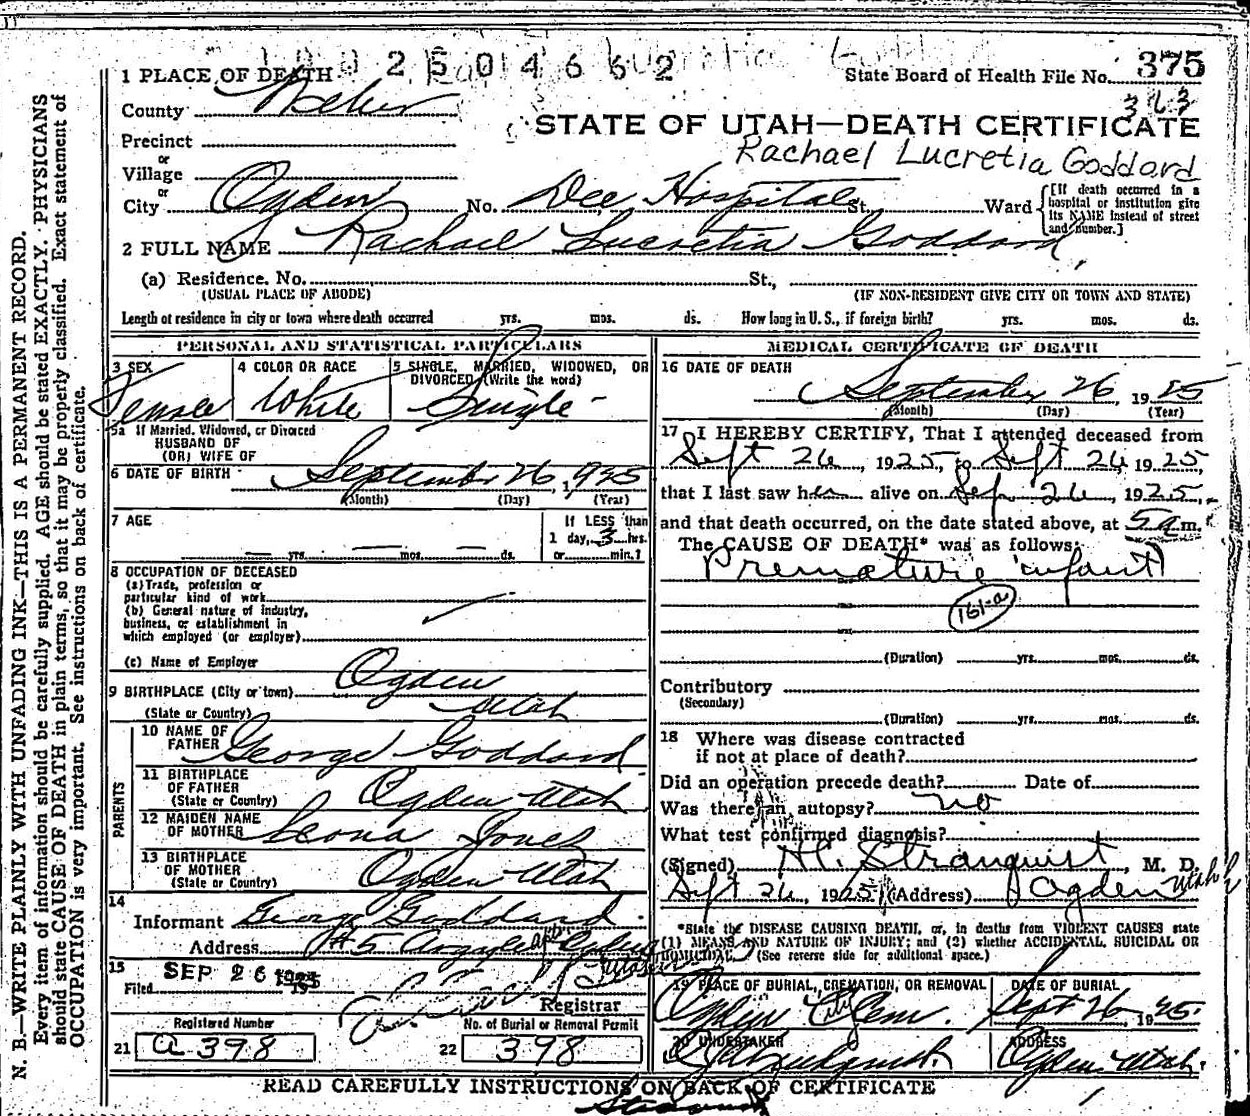 2504662
1 PLACE OF DEATH
State Board of Health File No. 375
363
County Weber
STATE OF UTAH—DEATH CERTIFICATE
Precinct
Rachael Lucretia Goddard
or
Village
or
City Ogden No. Dee Hospital St. Ward
[If death occurred in a hospital or institution give its NAME instead of street and number.]
2 FULL NAME Rachael Lucretia Goddard
(a) Residence. No. St.,
(USUAL PLACE OF ABODE) (IF NON-RESIDENT GIVE CITY OR TOWN AND STATE)
Length of residence in city or town where death occurred yrs. mos. ds. How long in U. S., if foreign birth? yrs. mos. ds.
PERSONAL AND STATISTICAL PARTICULARS
3 SEX
Female
4 COLOR OR RACE
White
5 SINGLE, MARRIED, WIDOWED, OR
DIVORCED (Write the word)
Single
5a If Married, Widowed, or Divorced
HUSBAND OF
(OR) WIFE OF
6 DATE OF BIRTH September 26, 1925
(Month) (Day) (Year)
7 AGE
— yrs. — mos. — ds.
If LESS than
1 day, 3 hrs.
or min.?
8 OCCUPATION OF DECEASED
(a) Trade, profession or
particular kind of work
(b) General nature of industry,
business, or establishment in
which employed (or employer)
(c) Name of Employer
9 BIRTHPLACE (City or town) Ogden
(State or Country) Utah
PARENTS
10 NAME OF
FATHER George Goddard
11 BIRTHPLACE
OF FATHER
(State or Country) Ogden Utah
12 MAIDEN NAME
OF MOTHER Leona Jones
13 BIRTHPLACE
OF MOTHER
(State or Country) Ogden Utah
14
Informant George Goddard
Address #5 Argyle apts Ogden
Utah
15
Filed SEP 26 1925
Registrar
Registered Number
21 a 398
No. of Burial or Removal Permit
22 398
MEDICAL CERTIFICATE OF DEATH
16 DATE OF DEATH
September 26, 1925
(Month) (Day) (Year)
17 I HEREBY CERTIFY, That I attended deceased from
Sept 26, 1925, to Sept 26 1925
that I last saw her alive on Sep 26, 1925,
and that death occurred, on the date stated above, at 5 a m.
The CAUSE OF DEATH* was as follows:
Premature infant
161-a
(Duration) yrs. mos. ds.
Contributory
(Secondary)
(Duration) yrs. mos. ds.
18 Where was disease contracted
if not at place of death?
Did an operation precede death? Date of
Was there an autopsy? no
What test confirmed diagnosis?
(Signed) H. Stranquist, M. D.
Sept 26, 1925 (Address) Ogden Utah
*State the DISEASE CAUSING DEATH, or, in deaths from VIOLENT CAUSES state
(1) MEANS AND NATURE OF INJURY; and (2) whether ACCIDENTAL, SUICIDAL OR
HOMICIDAL. (See reverse side for additional space.)
19 PLACE OF BURIAL, CREMATION, OR REMOVAL
Ogden City Cem.
DATE OF BURIAL
Sept 26, 1925
20 UNDERTAKER
ADDRESS
Ogden Utah.
READ CAREFULLY INSTRUCTIONS ON BACK OF CERTIFICATE
N. B.—WRITE PLAINLY WITH UNFADING INK—THIS IS A PERMANENT RECORD.
Every item of information should be carefully supplied. AGE should be stated EXACTLY. PHYSICIANS
should state CAUSE OF DEATH in plain terms, so that it may be properly classified. Exact statement of
OCCUPATION is very important. See instructions on back of certificate.